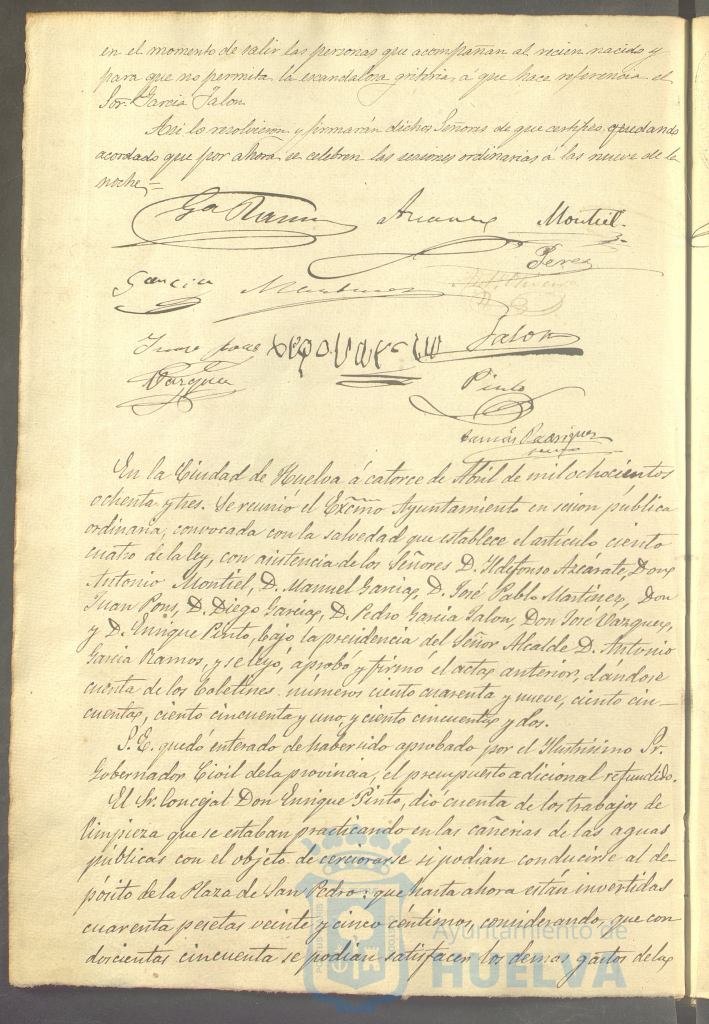 en el momento de salir las personas que acompañan al recien nacido y
para que no permita la escandalosa griteria á que hace referencia el
Sor. Garcia Jalon
Asi lo resolvieron y firmarán dichos Señores de que certifico, quedando
acordado que por ahora se celebren las sesiones ordinarias á las nueve de la
noche,=
Ga Ramos Montiel
Perez
Garcia Martinez
Juan pons Jalon
Vazquez Pinto
Ramón Rodriguez
En la Ciudad de Huelva á catorce de Abril de mil ochocientos
ochenta y tres. Se reunió el Excmo Ayuntamiento en sesion pública
ordinaria, convocada con la salvedad que establece el artículo ciento
cuatro de la ley, con asistencia de los Señores D. Ildefonso Azcárate, Don
Antonio Montiel, D. Manuel Garcia, D. José Pablo Martinez, Don
Juan Pons, D. Diego Garcia, D. Pedro Garcia Jalon, Don José Vazquez,
y D. Enrique Pinto, bajo la presidencia del Señor Alcalde D. Antonio
Garcia Ramos, y se leyó, aprobó y firmó el acta anterior, dándose
cuenta de los Boletines números ciento cuarenta y nueve, ciento cin-
cuenta, ciento cincuenta y uno, y ciento cincuenta y dos.
S. E. quedó enterado de haber sido aprobado por el Ilustrísimo Sr.
Gobernador Civil de la provincia, el presupuesto adicional refundido.
El Sr. Concejal Don Enrique Pinto, dió cuenta de los trabajos de
limpieza que se estaban practicando en las cañerias de las aguas
públicas con el objeto de cerciorarse si podian conducirse al de-
pósito de la Plaza de San Pedro: que hasta ahora están invertidas
cuarenta pesetas veinte y cinco céntimos, considerando, que con
doscientas cincuenta se podian satisfacer los demas gastos de la
Ayuntamiento de
HUELVA